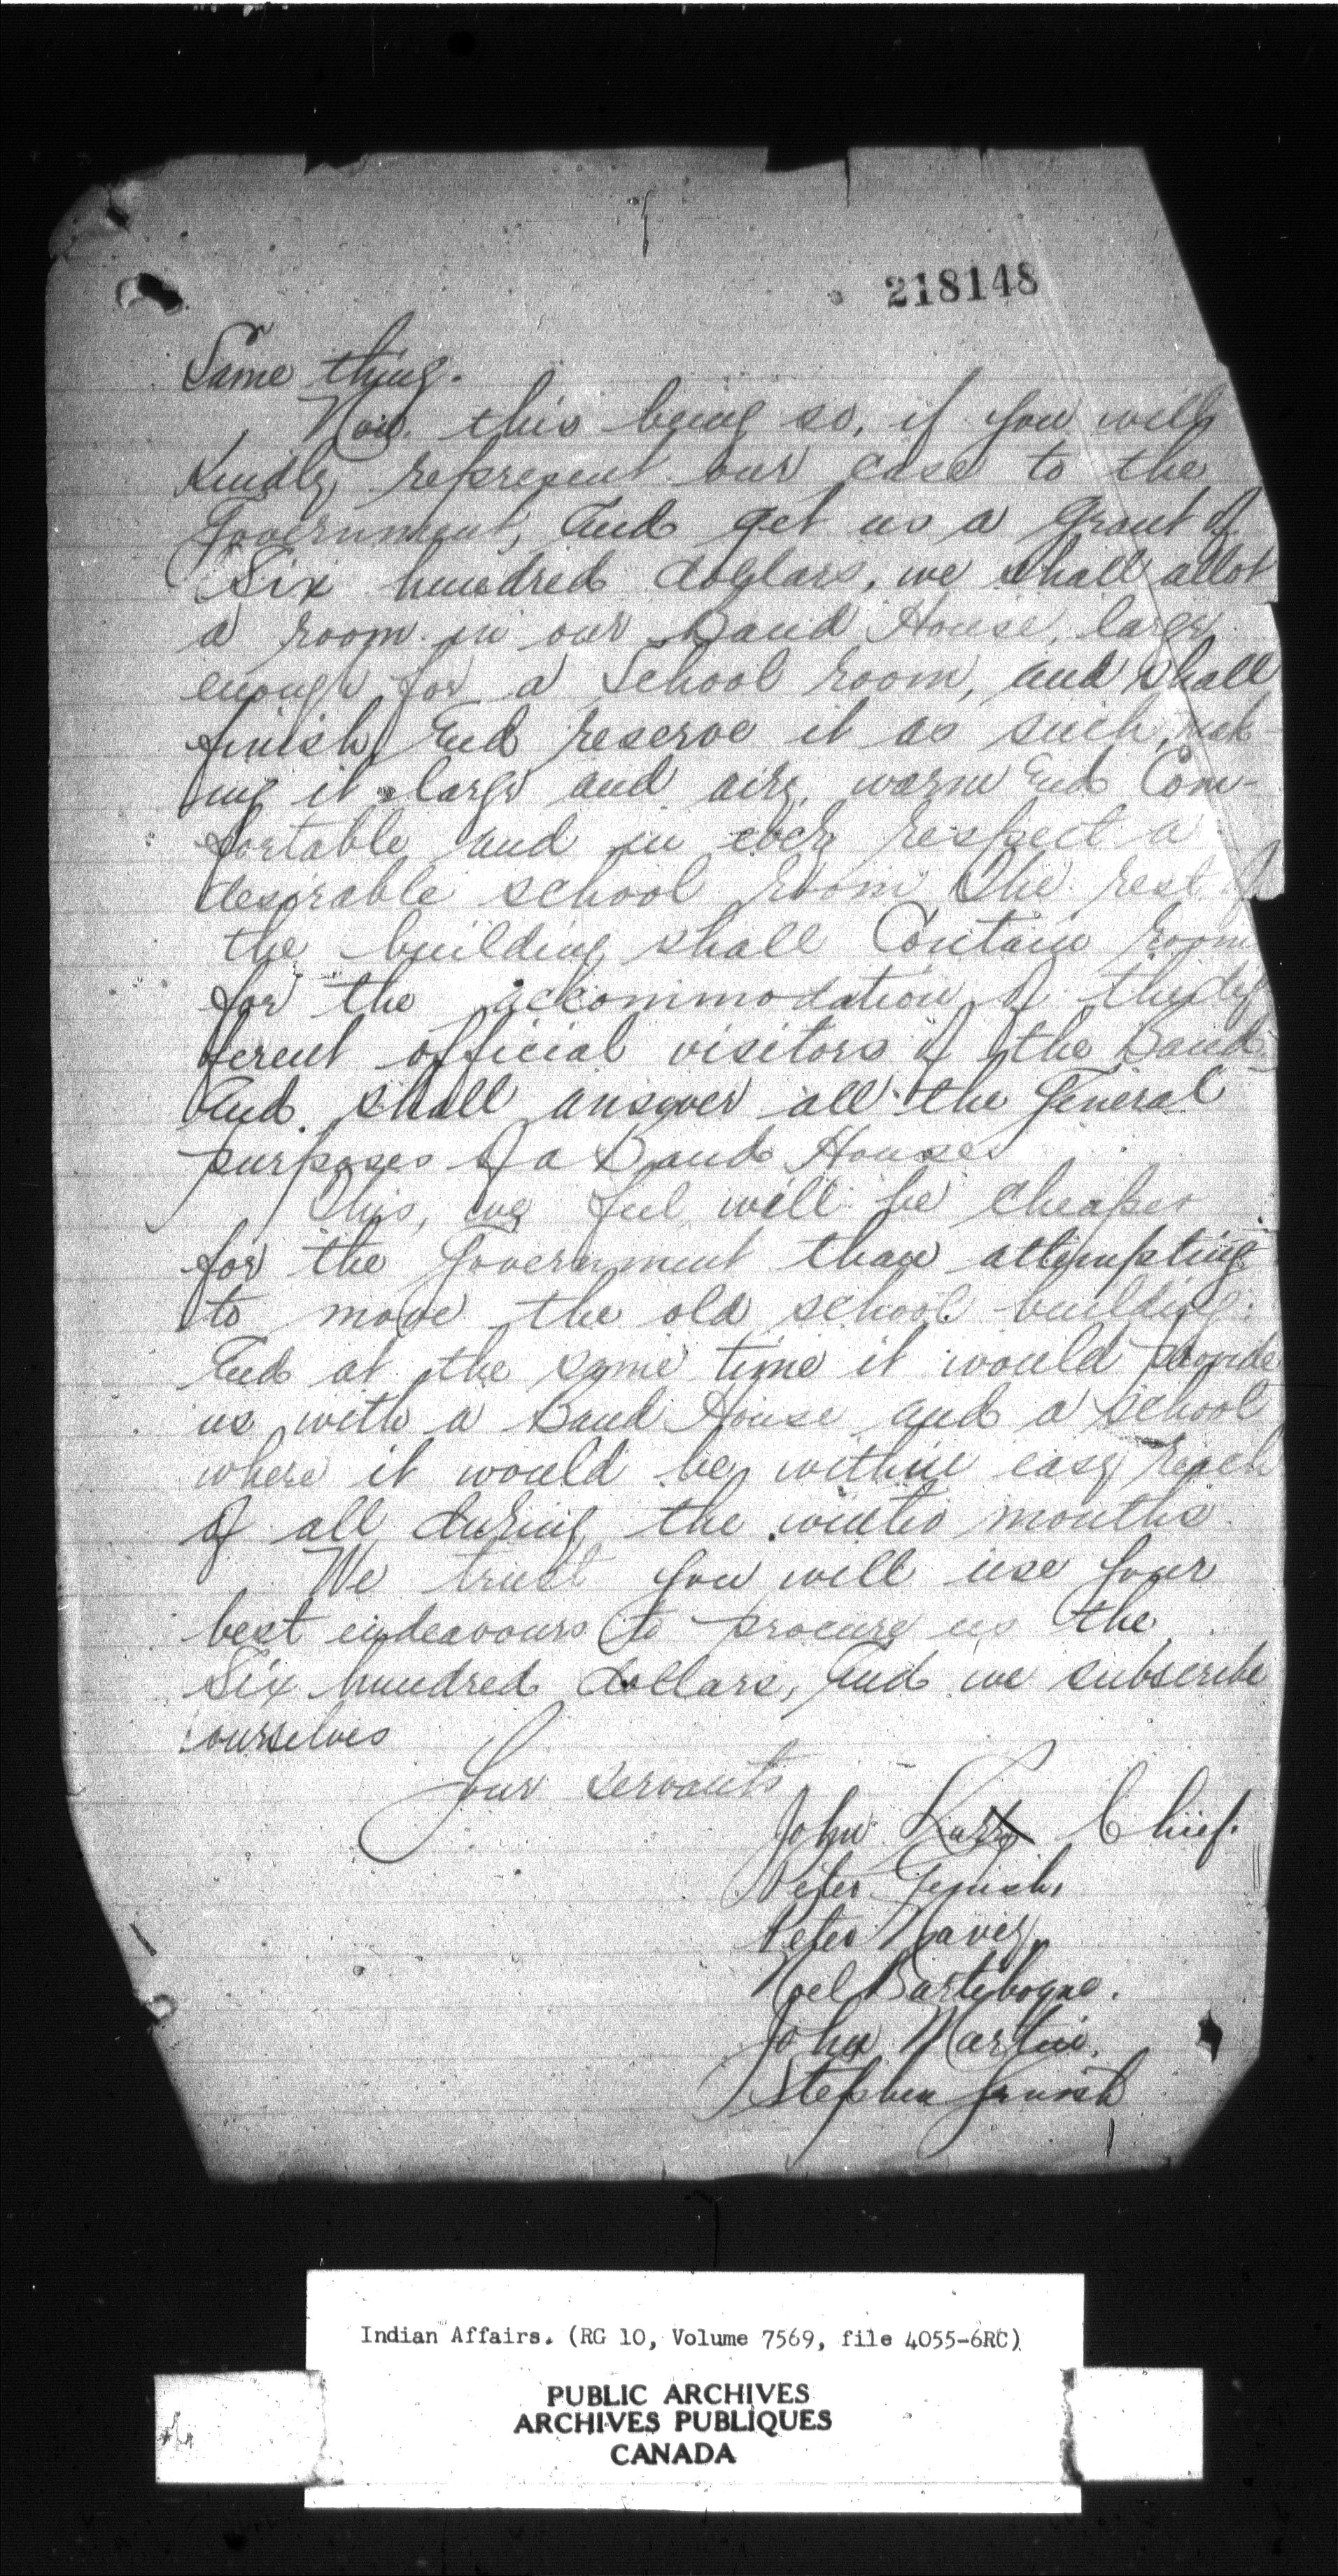 218148
Same thing.
Now this being so, if you will
Kindly represent our case to the
Government, and get us a grant of
Six hundred dollars, we shall allot
a room in our Band House, large
enough for a School room, and shall
finish and reserve it as such, mak-
ing it large and airy, warm and Com-
fortable and in every respect a
desirable school room The rest of
the building shall Contain room
for the accommodation of the dif
ferent official visitors of the Band
and shall answer all the General
purposes of a Band House
This, we feel will be cheaper
for the Government than attempting
to move the old school building.
And at the same time it would provide
us with a Band House and a School
where it would be within easy reach
of all during the winter months
We trust you will use your
best endeavours to procure us the
Six hundred dollars, and we subscribe
ourselves
Your servants
John Chief.
Peter
Peter
Noel Bartibogue.
John Martin.
Stephen
Indian Affairs. (RG 10, Volume 7569, file 4055-6RC)
PUBLIC ARCHIVES
ARCHIVES PUBLIQUES
CANADA